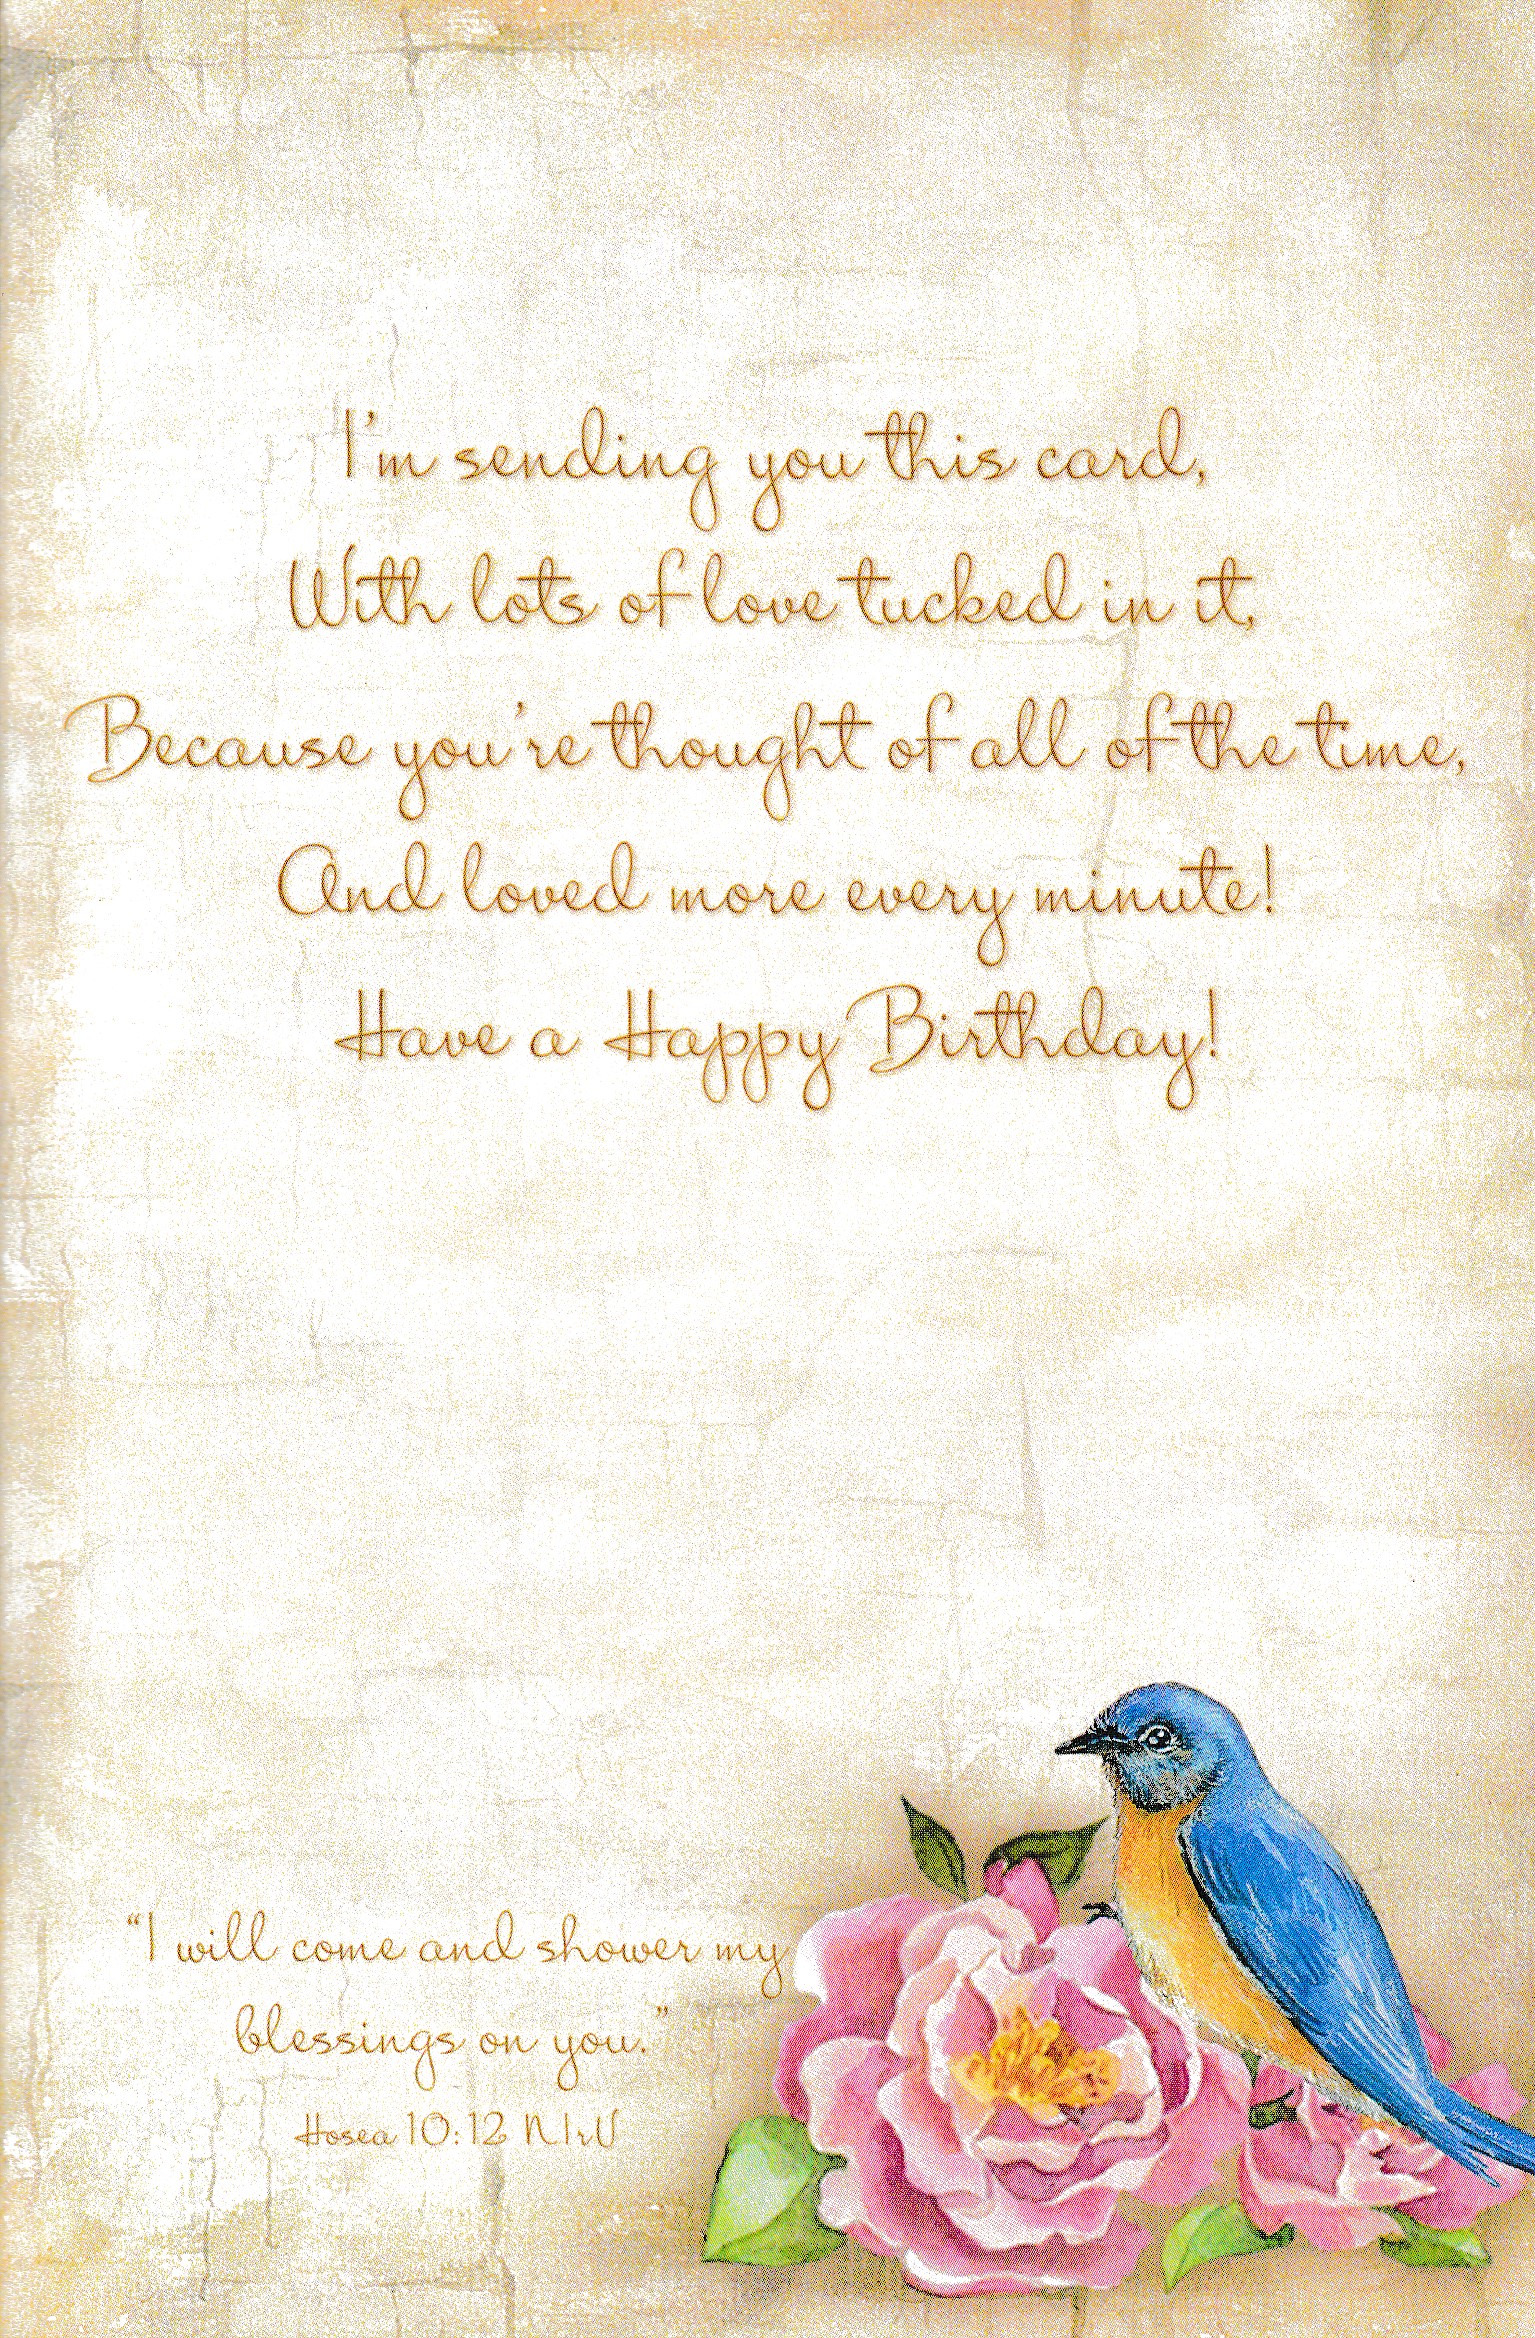 I'm sending you this card,
With lots of love tucked in it,
Because you're thought of all of the time,
And loved more every minute!
Have a Happy Birthday!
"I will come and shower my
blessings on you."
Hosea 10:12 NIrV